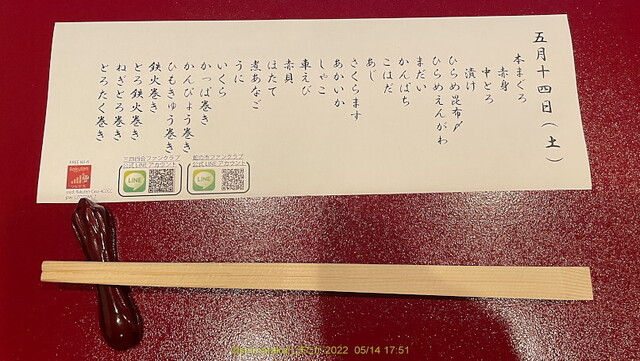 五月十四日（土）
本まぐろ
赤身
中とろ
漬け
ひらめ昆布〆
ひらめえんがわ
まだい
かんぱち
こはだ
あじ
さくらます
あかいか
しゃこ
車えび
赤貝
ほたて
煮あなご
うに
いくら
かっぱ巻き
かんぴょう巻き
ひもきゅう巻き
鉄火巻き
とろ鉄火巻き
ねぎとろ巻き
とろたく巻き
FREE Wi-Fi
三四四会ファンクラブ
公式LINEアカウント
LINE
公式LINEアカウント
LINE
2022 05/14 17:51